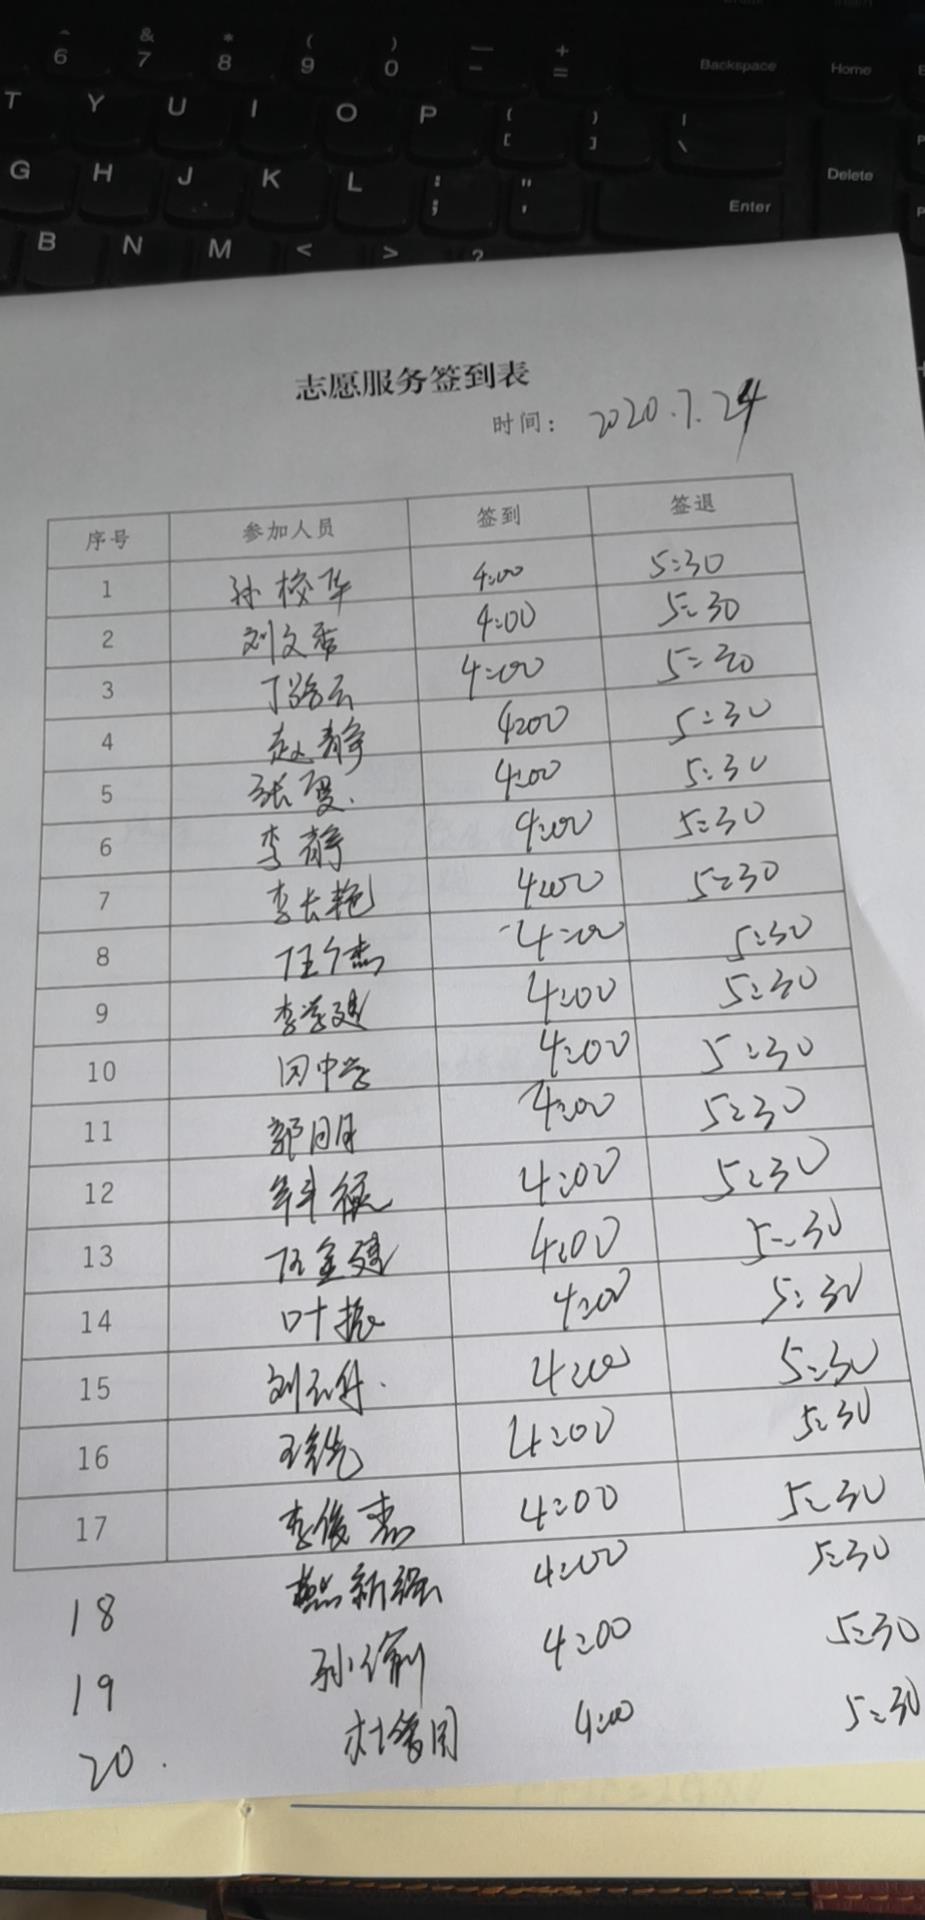 ^ & * ( ) — +
6 7 8 9 0 - = Backspace Home
T Y U I O P { [ } ] | \ Delete
G H J K L : ; " ' Enter
B N M < > ?
志愿服务签到表
时间: 2020.7.24
序号 参加人员 签到 签退
1 孙校华 4:00 5:30
2 刘文秀 4:00 5:30
3 4:00 5:30
4 赵静 4:00 5:30
5 张曼 4:00 5:30
6 李静 4:00 5:30
7 李长艳 4:00 5:30
8 4:00 5:30
9 李学建 4:00 5:30
10 田中学 4:00 5:30
11 郭明月 4:00 5:30
12 4:00 5:30
13 4:00 5:30
14 叶振 4:00 5:30
15 4:00 5:30
16 4:00 5:30
17 李俊杰 4:00 5:30
18 燕新强 4:00 5:30
19 孙俞 4:00 5:30
20. 4:00 5:30